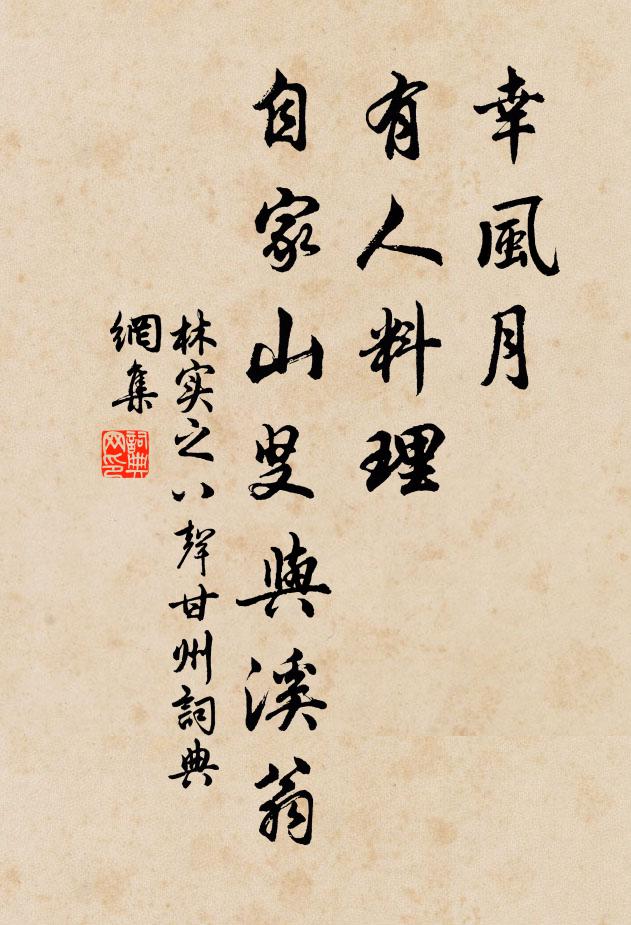 幸風月
有人料理
自家山叟與溪翁
林实之八聲甘州詞典
網集
詞典
网印